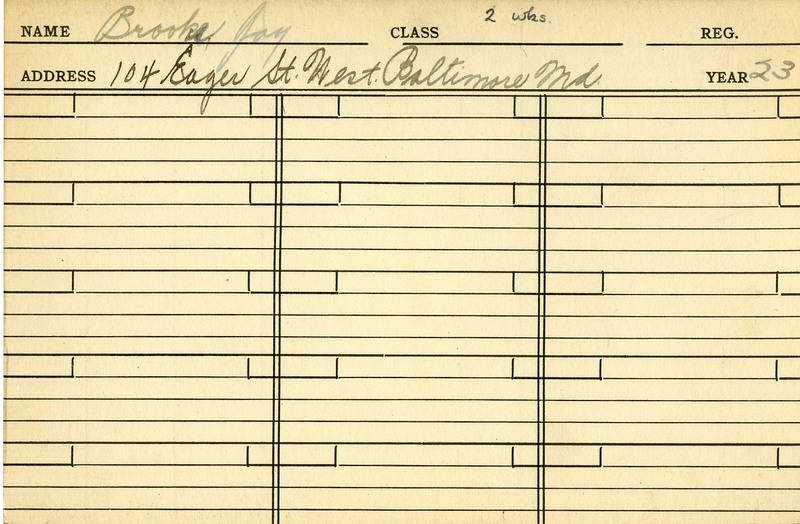 NAME Brooke, Joy CLASS 2 wks. REG.
ADDRESS 104 Eager St. West. Baltimore Md. YEAR 23